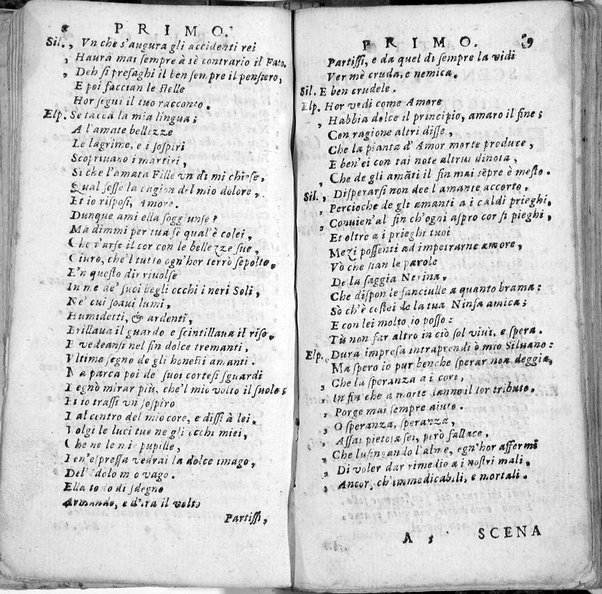 8 PRIMO.
Sil., Vn che s'augura gli accidenti rei
, Haurà mai sempre à sè contrario il Fato.
, Deh si presaghi il ben sempre il pensiero,
, E poi faccian le stelle
Hor segui il tuo racconto.
Elp. Se tacea la mia lingua;
A l'amate bellezze
Le lagrime, e i sospiri
Scoprivano i martiri,
Sì che l'amata Fille vn dì mi chiese,
Qual fosse la cagion del mio dolore,
Et io risposi, Amore.
Dunque ami ella soggiunse?
Ma dimmi per tua fè qual'è colei,
Che t'arse il cor con le bellezze sue,
Giuro, che'l tutto ogn'hor terrò sepolto.
E'n questo dir riuolse
In me de' suoi begli occhi i neri Soli,
Ne' cui soaui lumi,
Humidetti, & ardenti,
Brillaua il guardo e scintillaua il riso.
E vedeansi nel fin dolce tremanti,
Vltimo segno de gli honesti amanti.
Ma parca poi de' suoi cortesi sguardi
Legnò mirar più, che'l mio volto il suolo;
Et io trassi vn sospiro
Dal centro del mio core, e dissi à lei,
Volgi le luci tue ne gli occhi miei,
Che ne le mie pupille,
Iui espressa vedrai la dolce imago,
Del' Idolo mio vago.
Ella tosto di sdegno
Armando, e d'ira il volto
Partissi,
PRIMO. 9
Partissi, e da quel dì sempre la vidi
Ver me cruda, e nemica.
Sil. E ben crudele.
Elp. Hor vedi come Amore
, Habbia dolce il principio, amaro il fine;
, Con ragione altri disse,
, Che la pianta d'Amor morte produce,
, E ben'ei con tai note altrui dinota,
, Che de gli amāti il fin mai sēpre è mesto.
Sil., Disperarsi non dee l'amante accorto,
, Percioche de gli amanti a i caldi prieghi,
, Conuien'al fin ch'ogni aspro cor si pieghi,
Et oltre a i prieghi tuoi
Mezi possenti ad impetrarne amore,
Vò che sian le parole
De la saggia Nerina,
Che dispon le fanciulle a quanto brama:
Sò ch'è cestei de la tua Ninfa amica;
E con lei molto io posso:
Tù non far altro in ciò sol viui, e spera.
Elp. Dura impresa intraprendi ò mio Siluano:
Ma spero io pur benche sperar non deggia,
, Che la speranza a i cori,
, In fin che a morte danno il lor tributo.
, Porge mai sempre aiuto.
, O speranza, speranza,
, Assai pietosa sei, però fallace,
, Che lusingando l'alme, ogn'hor affermi
, Di voler dar rimedio a i nostri mali,
, Ancor, ch'immedicabili, e mortali.
A 5 SCENA